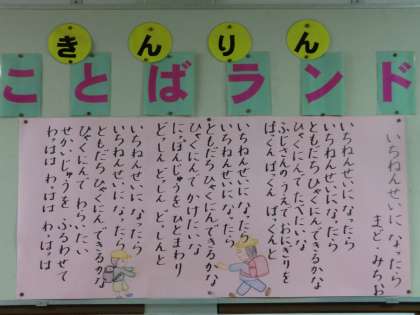 きんりん
ことばランド
いちねんせいになったら
まど みちお
いちねんせいに なったら
いちねんせいに なったら
ともだち ひゃくにん できるかな
ひゃくにんで たべたいな
ふじさんの うえで おにぎりを
ぱっくん ぱっくん ぱっくんと
いちねんせいに なったら
いちねんせいに なったら
ともだち ひゃくにん できるかな
ひゃくにんで かけたいな
にっぽんじゅうを ひとまわり
どっしん どっしん どっしんと
いちねんせいに なったら
いちねんせいに なったら
ともだち ひゃくにん できるかな
ひゃくにんで わらいたい
せかいじゅうを ふるわせて
わっはは わっはは わっはっは